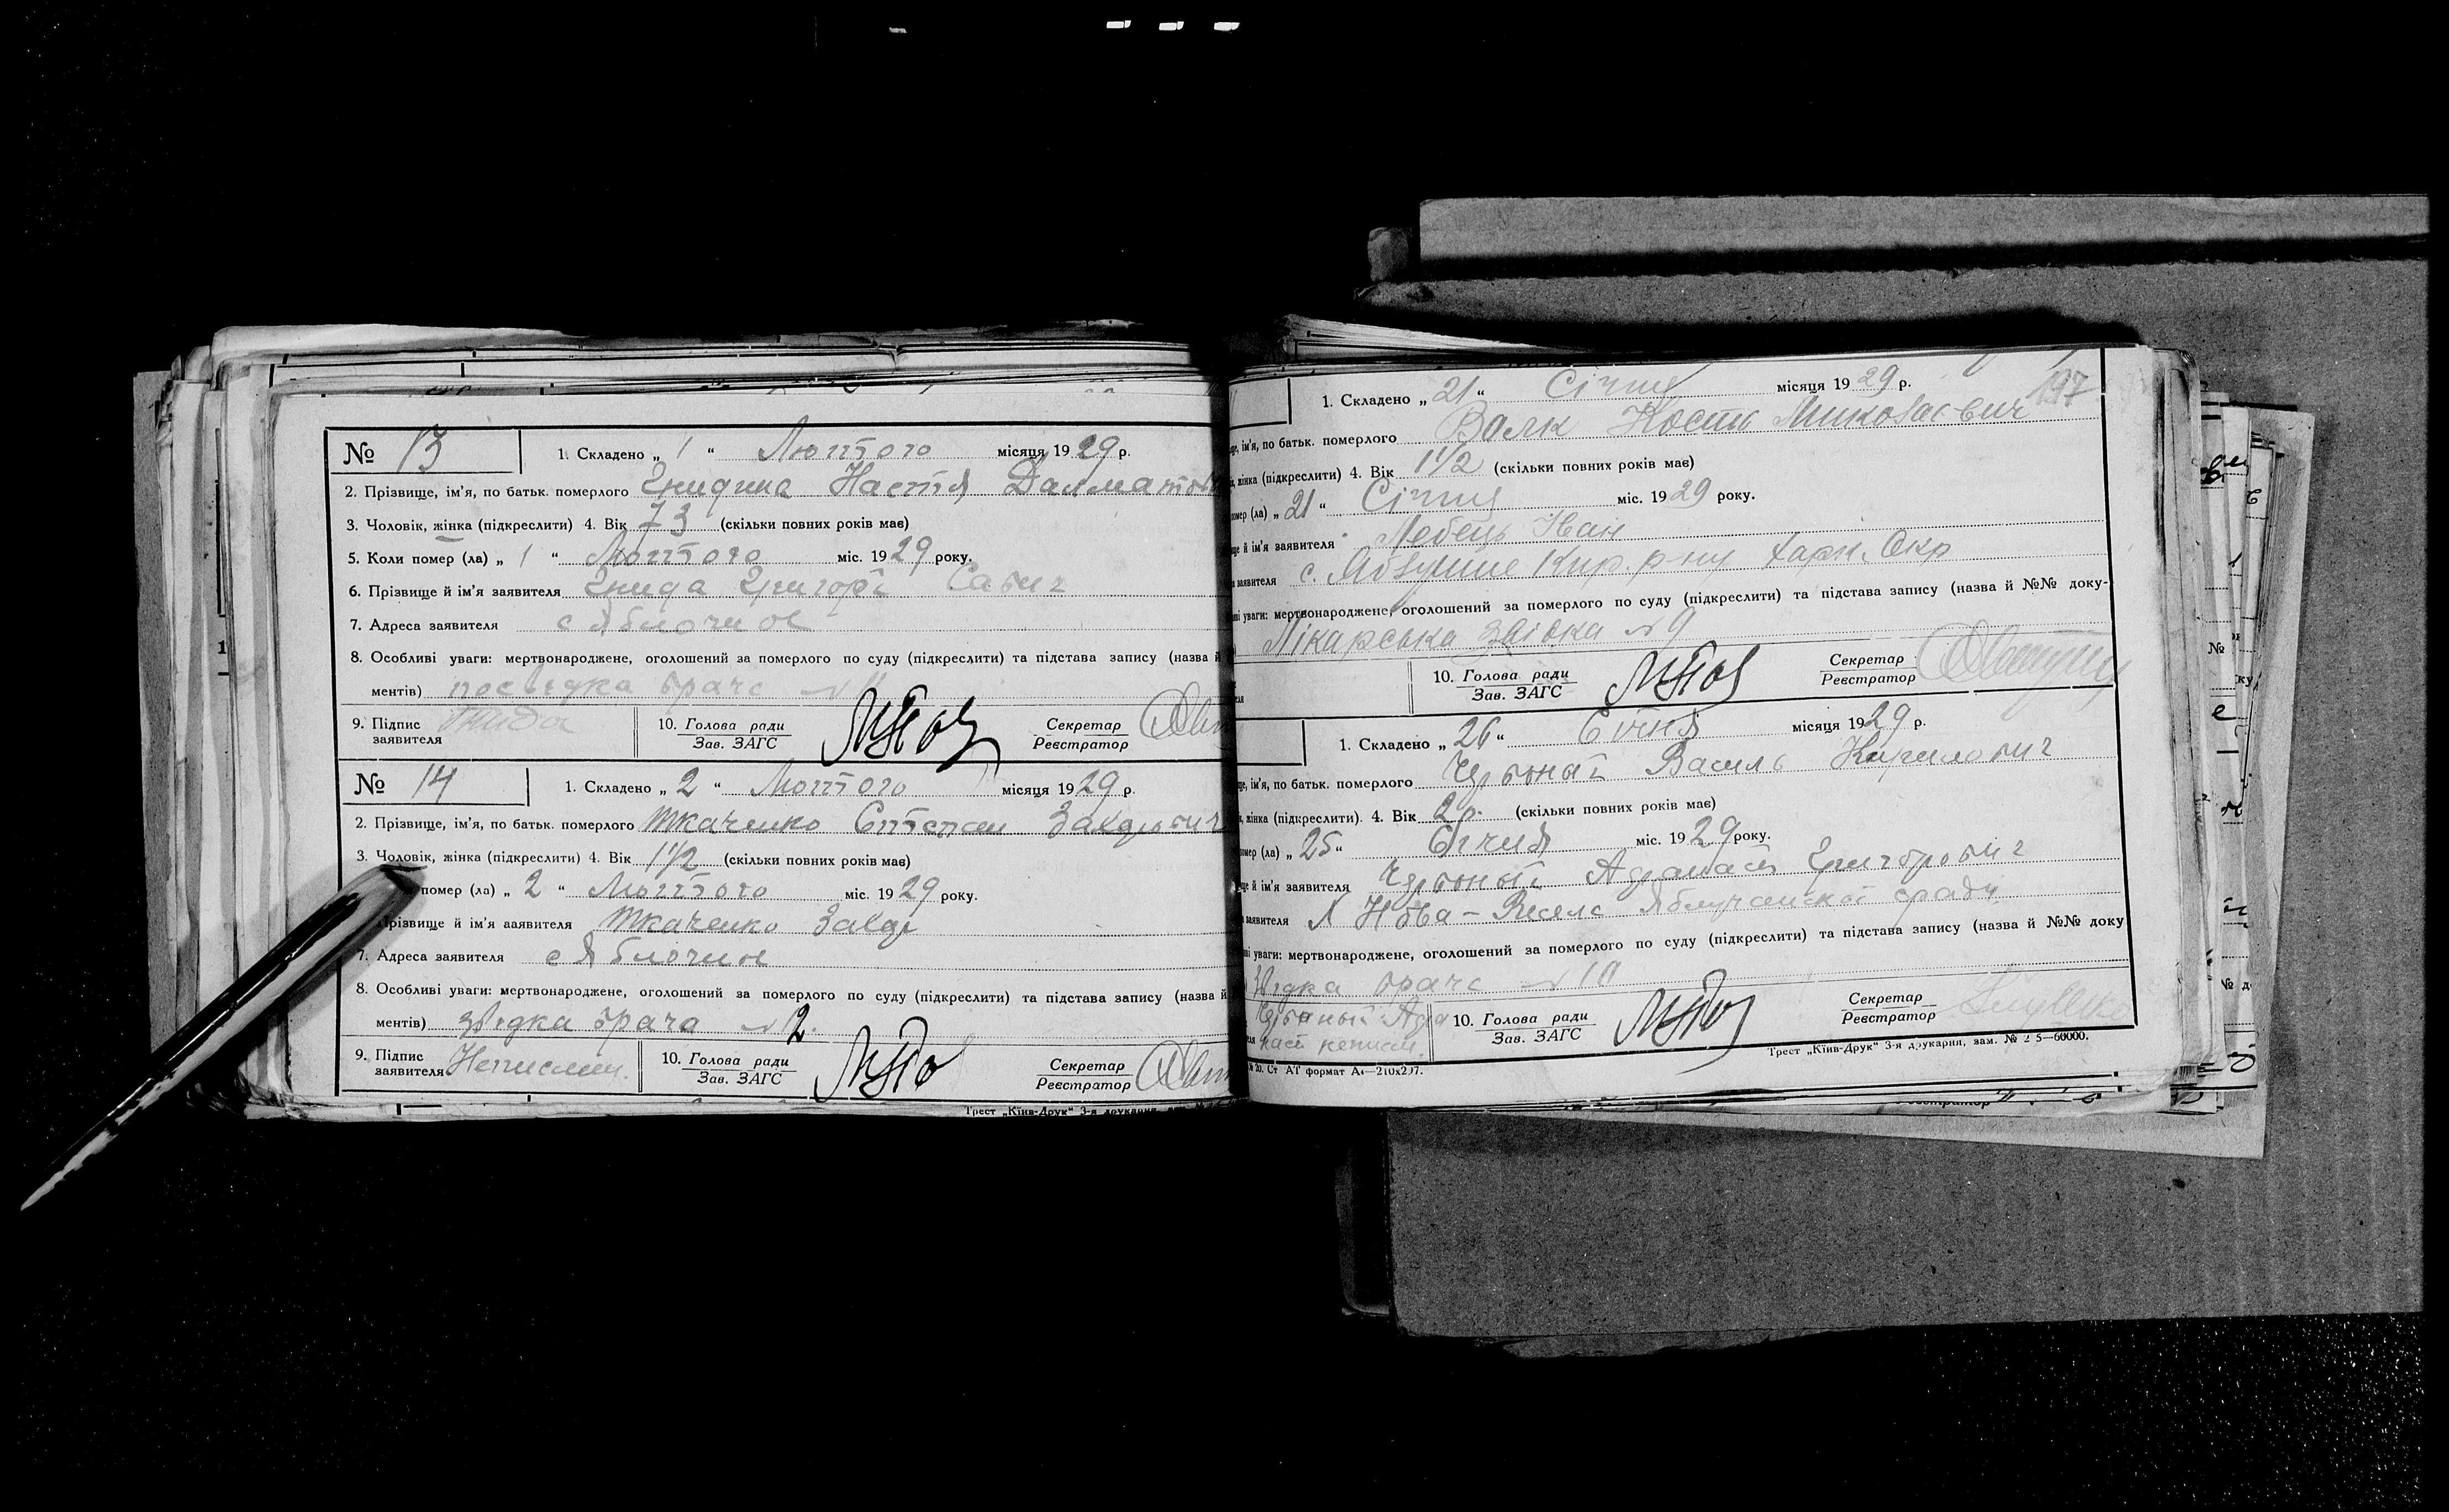 № 13 1. Складено „ 1 “ Лютого місяця 1929 р.
2. Прізвище, ім'я, по батьк. померлого Гнидина Настя Далматов
3. Чоловік, жінка (підкреслити) 4. Вік 73 (скільки повних років має)
5. Коли помер (ла) „ 1 “ Лютого міс. 1929 року.
6. Прізвище й ім'я заявителя Гнида Григорі Савич
7. Адреса заявителя с Яблочне
8. Особливі уваги: мертвонароджене, оголошений за померлого по суду (підкреслити) та підстава запису (назва й
ментів) посвідка врача № 11
9. Підпис заявителя Гнида 10. Голова ради Зав. ЗАГС Секретар Реєстратор
№ 14 1. Складено „ 2 “ Лютого місяця 1929 р.
2. Прізвище, ім'я, по батьк. померлого Ткаченко Степан
3. Чоловік, жінка (підкреслити) 4. Вік 1 1/2 (скільки повних років має)
помер (ла) „ 2 “ Лютого міс. 1929 року.
Прізвище й ім'я заявителя Ткаченко
7. Адреса заявителя с Яблочне
8. Особливі уваги: мертвонароджене, оголошений за померлого по суду (підкреслити) та підстава запису (назва й
ментів) звідка врача № 2.
9. Підпис заявителя Неписьмен. 10. Голова ради Зав. ЗАГС Секретар Реєстратор
Трест „Київ-Друк“ 3-я друкарня,
197
1. Складено „ 21 “ Січня місяця 1929 р.
ім'я, по батьк. померлого Вовк Кость Миколаєвич
жінка (підкреслити) 4. Вік 1 1/2 (скільки повних років має)
помер (ла) „ 21 “ Січня міс. 1929 року.
й ім'я заявителя Лебець Іван
заявителя с. Яблушне Кир. р-ну Харк. Окр
уваги: мертвонароджене, оголошений за померлого по суду (підкреслити) та підстава запису (назва й №№ доку-
Лікарська звідка № 9
10. Голова ради Зав. ЗАГС Секретар Реєстратор
1. Складено „ 26 “ Січня місяця 1929 р.
ім'я, по батьк. померлого Василь Кирилович
жінка (підкреслити). 4. Вік 2 р. (скільки повних років має)
помер (ла) „ 25 “ Січня міс. 1929 року.
й ім'я заявителя Афанасій Григорович
заявителя х Нова-
уваги: мертвонароджене, оголошений за померлого по суду (підкреслити) та підстава запису (назва й №№ доку
Звідка врача № 10
10. Голова ради Зав. ЗАГС Секретар Реєстратор
№ 20. Ст АТ формат А4—210х297. Трест „Київ-Друк“ 3-я друкарня, зам. № 2 5—60000.